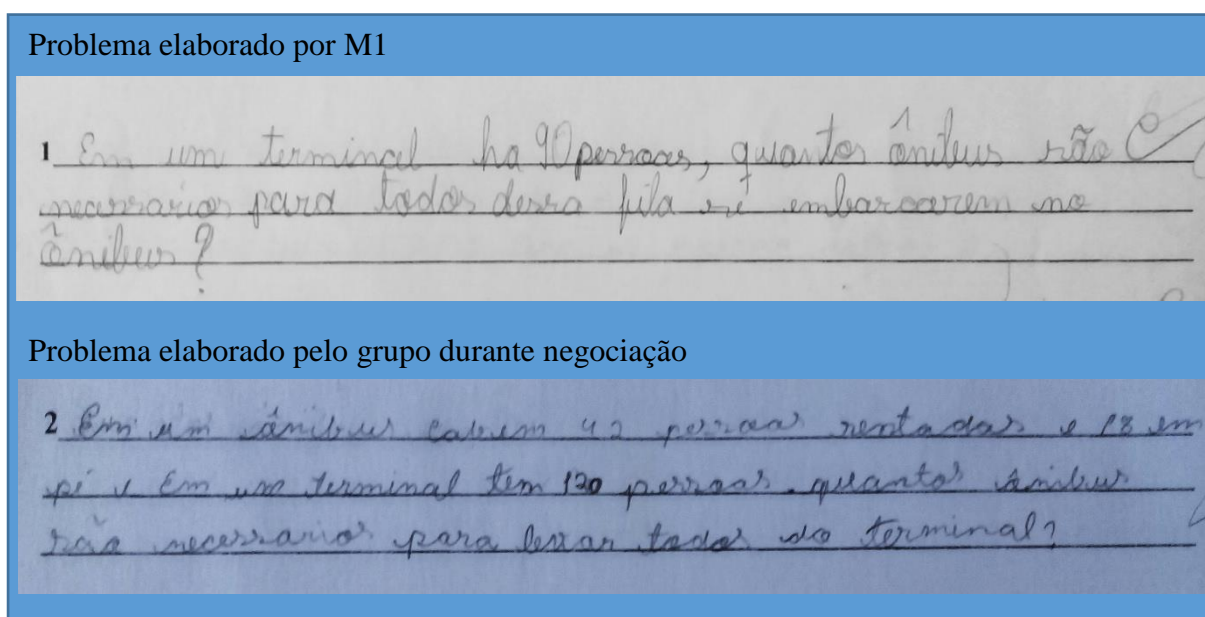 Problema elaborado por M1
1 Em um terminal ha 90 pessoas, quantos ônibus são
necessarios para todos dessa fila sé embarcarem no
ônibus?
Problema elaborado pelo grupo durante negociação
2 Em um ônibus cabem 42 pessoas sentadas e 18 em
pé e Em um terminal tem 120 pessoas. quantos ônibus
são necessarios para levar todos do terminal?